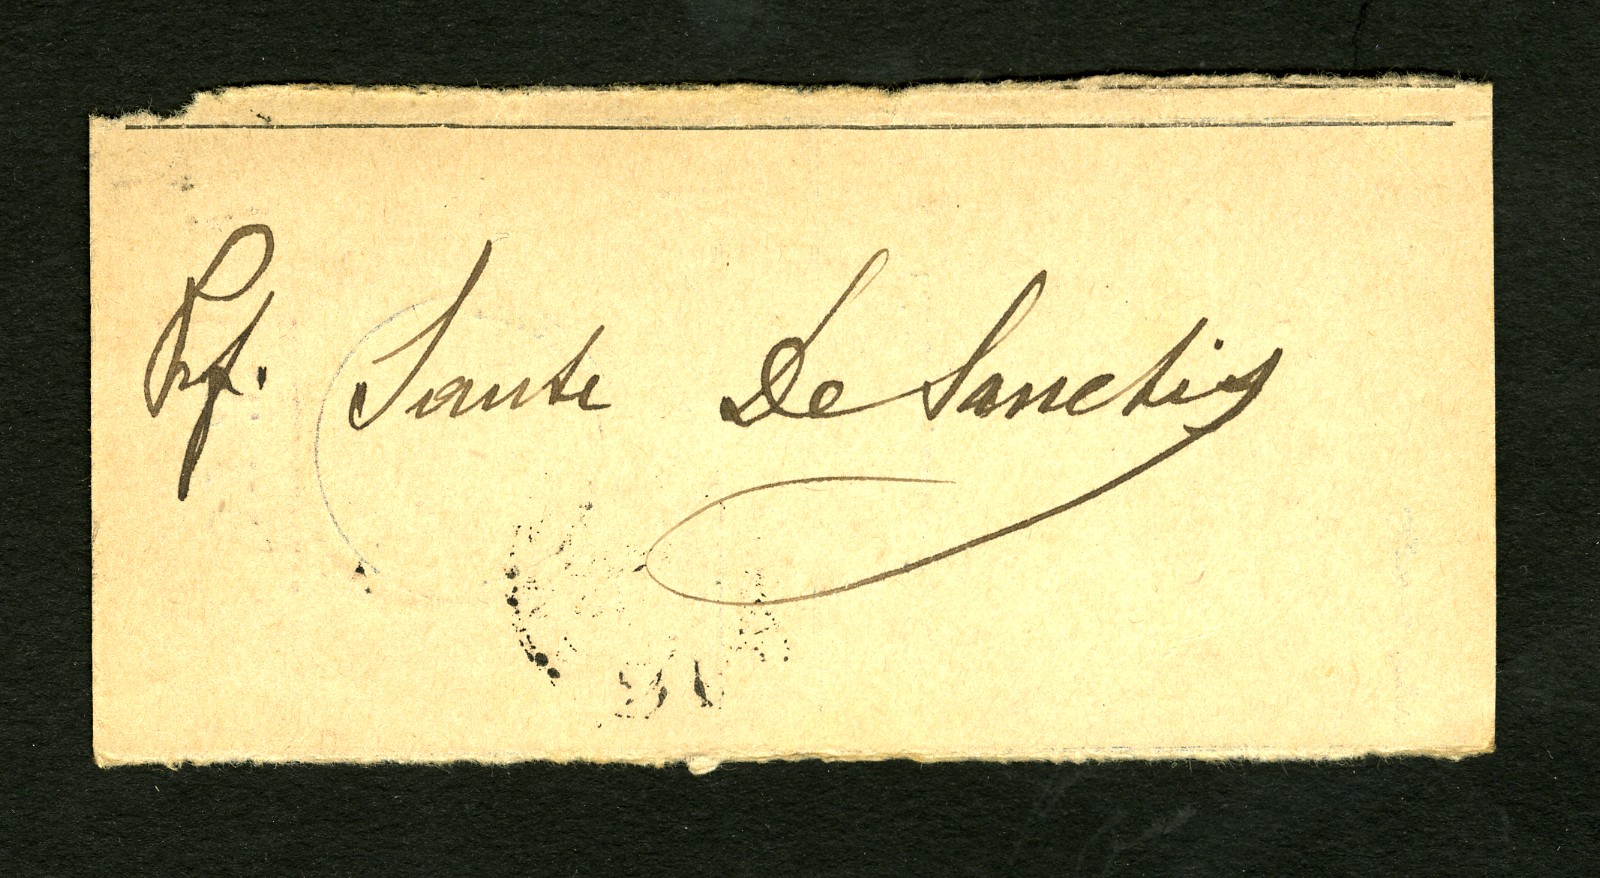 Prf. Sante De Sanctis